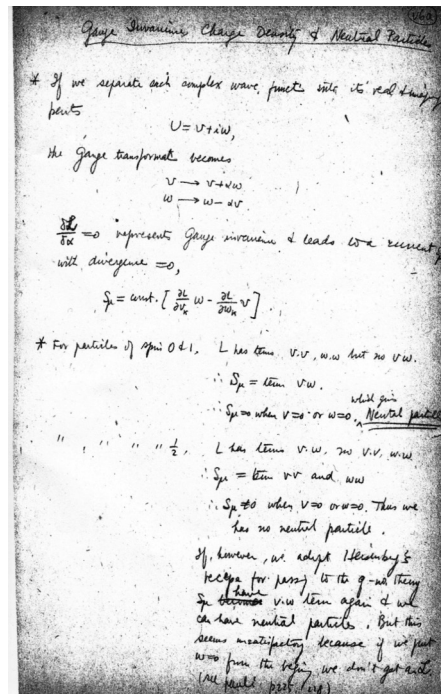 Gauge Invariance, Charge Density & Neutral Particles
* If we separate each complex wave funct into its real & imag
parts
U = v + iw,
the Gauge transformat becomes
v → v + αw
w → w - αv
∂L/∂α = 0 represents Gauge invariance & leads to a current
with divergence = 0,
Sμ = const. [ ∂L/∂vμ w - ∂L/∂wμ v ]
* For particles of spin 0 & 1, L has terms v.v, w.w but no v.w.
∴ Sμ = term v.w.
∴ Sμ = 0 when v = 0 or w = 0, which gives Neutral particle
" " " " 1/2, L has terms v.w, no v.v, w.w
∴ Sμ = term v.v and w.w
∴ Sμ ≠ 0 when v = 0 or w = 0. Thus we
have no neutral particle.
If, however, we adopt Heisenberg's
for passing to the q-no. theory
Sμ have v.w term again & we
can have neutral particles. But this
seems unsatisfactory because if we put
w = 0 from the begin, we don't get
(see Pauli